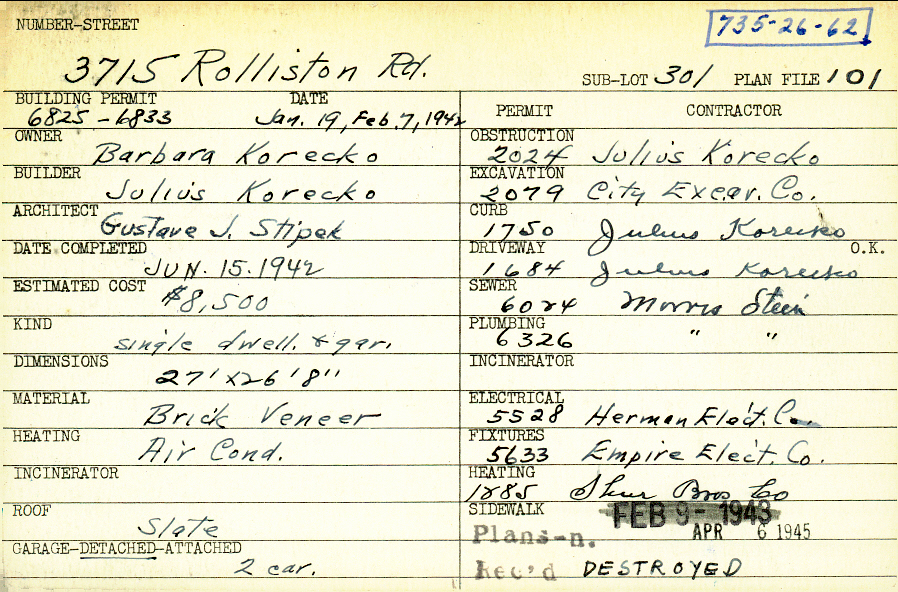 NUMBER-STREET
735-26-62
3715 Rolliston Rd.
SUB-LOT 301 PLAN FILE 101
BUILDING PERMIT DATE
6825-6833 Jan. 19, Feb. 7, 1942
OWNER
Barbara Korecko
BUILDER
Julius Korecko
ARCHITECT
Gustave J. Stipek
DATE COMPLETED
JUN. 15. 1942
ESTIMATED COST
$8,500
KIND
single dwell. & gar.
DIMENSIONS
27' x 26' 8"
MATERIAL
Brick Veneer
HEATING
Air Cond.
INCINERATOR
ROOF
Slate
GARAGE-DETACHED-ATTACHED
2 car.
PERMIT CONTRACTOR
OBSTRUCTION
2024 Julius Korecko
EXCAVATION
2079 City Excav. Co.
CURB
1750 Julius Korecko
DRIVEWAY O.K.
1684 Julius Korecko
SEWER
6024 Morris Stein
PLUMBING
6326 " "
INCINERATOR
ELECTRICAL
5528 Herman Elect. Co.
FIXTURES
5633 Empire Elect. Co.
HEATING
1885 Bros Co
SIDEWALK
FEB 9-1943
Plans-n. APR 6 1945
Rec'd DESTROYED